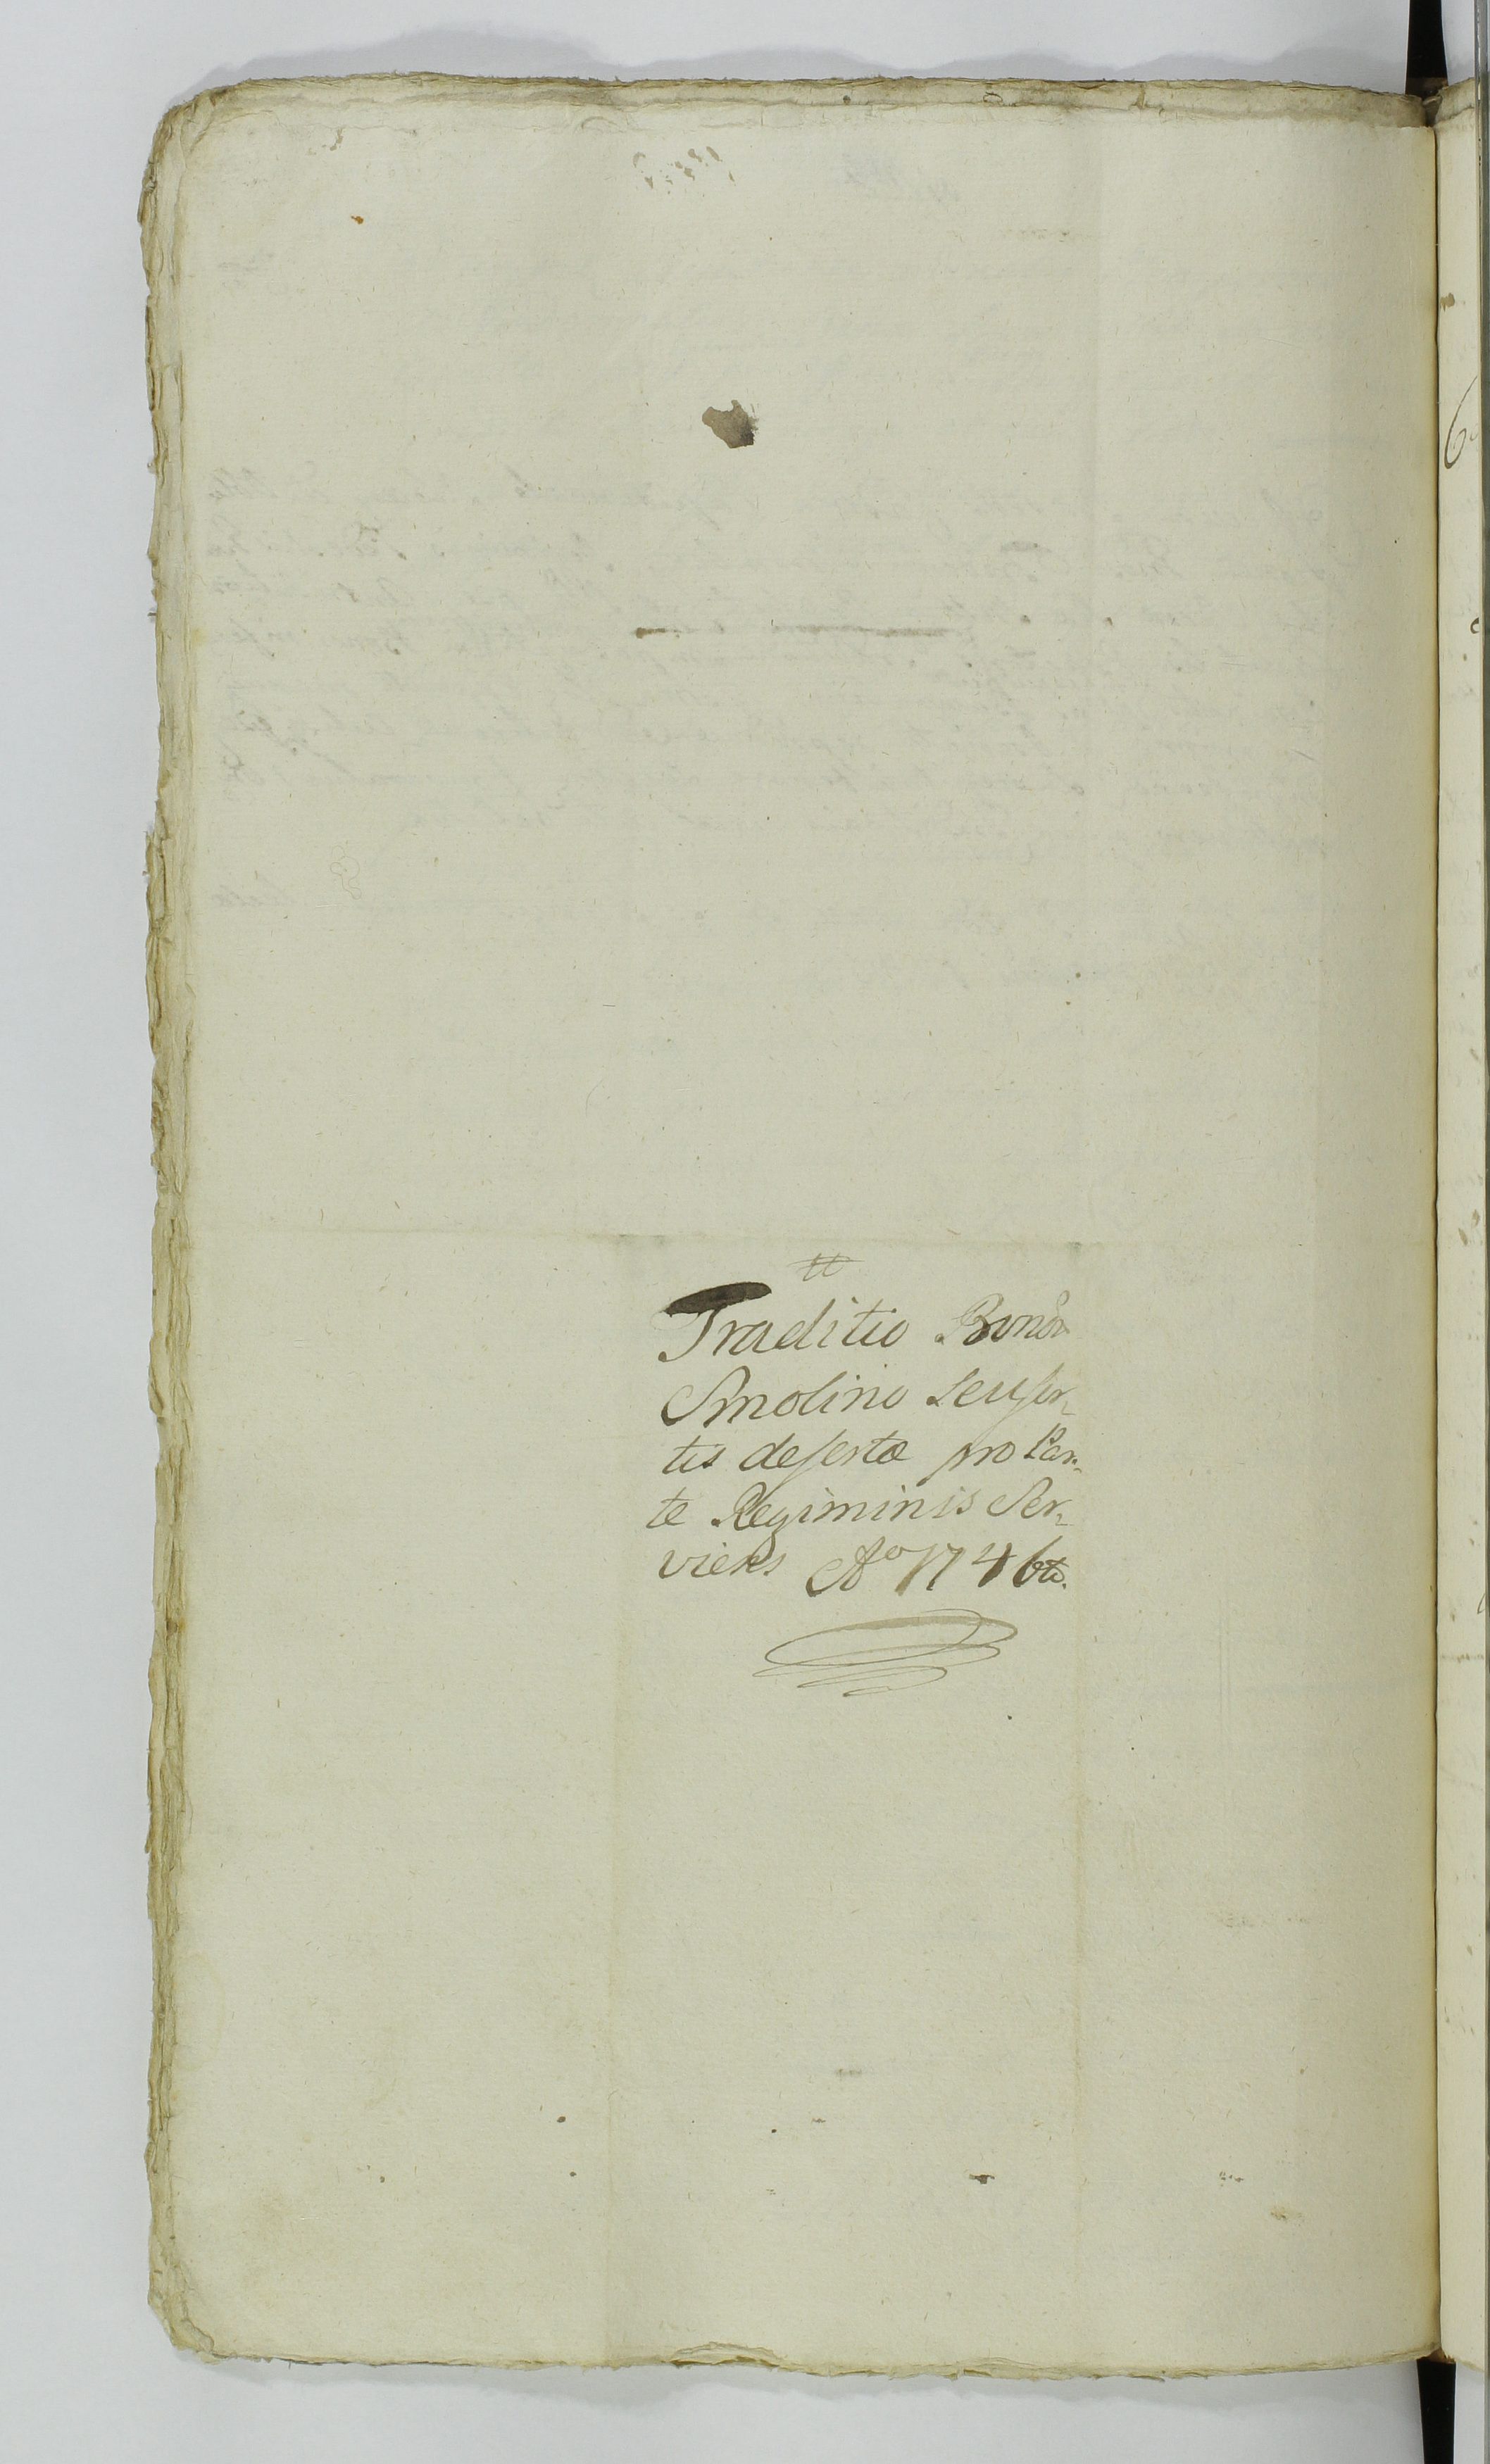 #
Traditio Bonor
Smolino seu sor-
tis desertæ pro Par-
te Regiminis Ser-
viens Aº 1746to.
6